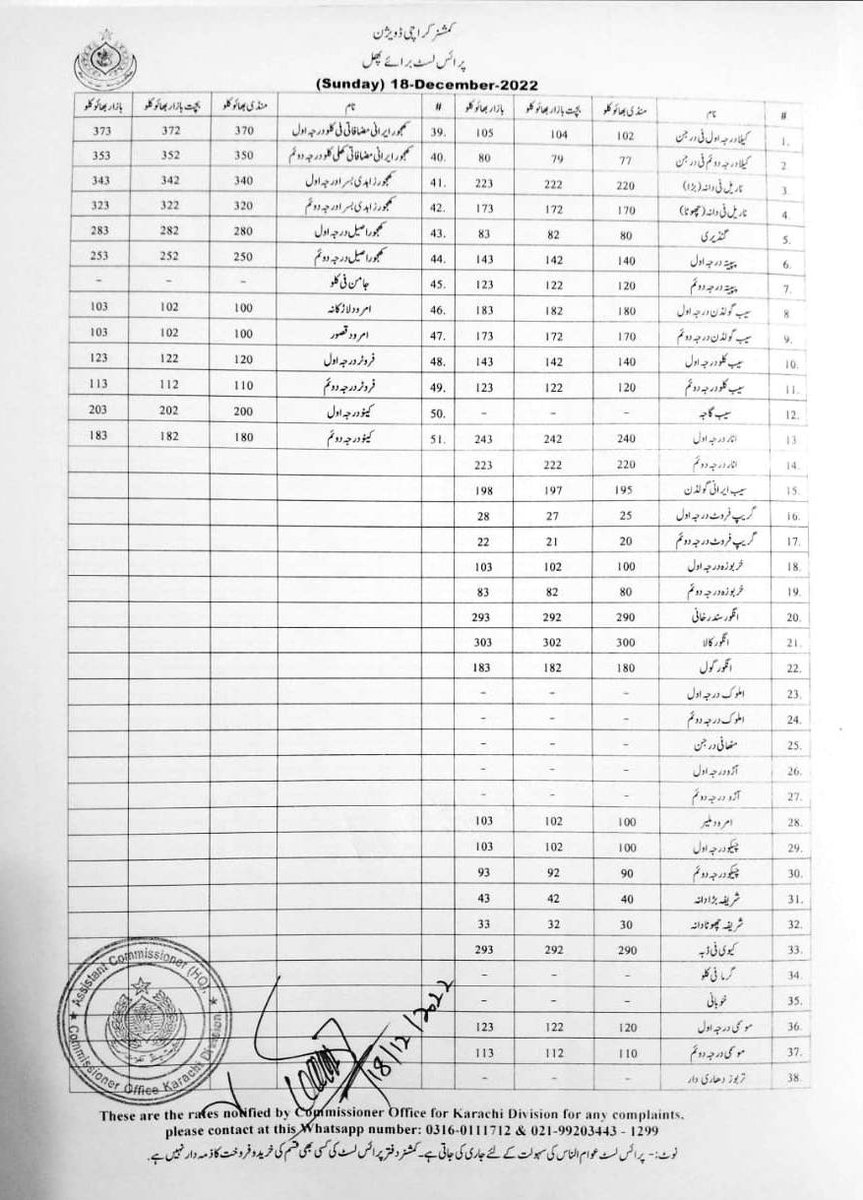 کمشنر کراچی ڈویژن
پرائس لسٹ برائے پھل
(Sunday) 18-December-2022
# نام منڈی بھائو کلو بچت بازار بھائو کلو بازار بھائو کلو # نام منڈی بھائو کلو بچت بازار بھائو کلو بازار بھائو کلو
1. کیلا درجہ اول فی درجن 102 104 105 39. کھجور ایرانی مضافاتی فی کلو درجہ اول 370 372 373
2 کیلا درجہ دوئم فی درجن 77 79 80 40. کھجور ایرانی مضافاتی کھلی کلو درجہ دوئم 350 352 353
3 ناریل فی دانہ (بڑا) 220 222 223 41. کھجور زاہدی بسرا درجہ اول 340 342 343
4. ناریل فی دانہ (چھوٹا) 170 172 173 42. کھجور زاہدی بسرا درجہ دوئم 320 322 323
5. گنڈیری 80 82 83 43. کھجور اصیل درجہ اول 280 282 283
6. پپیتہ درجہ اول 140 142 143 44. کھجور اصیل درجہ دوئم 250 252 253
7. پپیتہ درجہ دوئم 120 122 123 45. جامن فی کلو - - -
8 سیب گولڈن درجہ اول 180 182 183 46. امرود لاڑکانہ 100 102 103
9. سیب گولڈن درجہ دوئم 170 172 173 47. امرود قصور 100 102 103
10. سیب کلو درجہ اول 140 142 143 48. فروٹر درجہ اول 120 122 123
11. سیب کلو درجہ دوئم 120 122 123 49. فروٹر درجہ دوئم 110 112 113
12. سیب گاجہ - - - 50. کینو درجہ اول 200 202 203
13 انار درجہ اول 240 242 243 51. کینو درجہ دوئم 180 182 183
14. انار درجہ دوئم 220 222 223
15. سیب ایرانی گولڈن 195 197 198
16. گریپ فروٹ درجہ اول 25 27 28
17. گریپ فروٹ درجہ دوئم 20 21 22
18. خربوزہ درجہ اول 100 102 103
19. خربوزہ درجہ دوئم 80 82 83
20. انگور سندر خانی 290 292 293
21. انگور کالا 300 302 303
22. انگور گول 180 182 183
23. املوک درجہ اول - - -
24. املوک درجہ دوئم - - -
25. فی درجن - - -
26. آڑو درجہ اول - - -
27. آڑو درجہ دوئم - - -
28. امرود ملیر 100 102 103
29. چیکو درجہ اول 100 102 103
30. چیکو درجہ دوئم 90 92 93
31. شریفہ بڑا دانہ 40 42 43
32. شریفہ چھوٹا دانہ 30 32 33
33. کیوی فی ڈبہ 290 292 293
34. گرما فی کلو - - -
35. خوبانی - - -
36. موسمی درجہ اول 120 122 123
37. موسمی درجہ دوئم 110 112 113
38. تربوز دھاری دار - - -
Assistant Commissioner (HQ),
Commissioner Office Karachi Division
18/12/2022
These are the rates notified by Commissioner Office for Karachi Division for any complaints,
please contact at this Whatsapp number: 0316-0111712 & 021-99203443 - 1299
نوٹ:- پرائس لسٹ عوام الناس کی سہولت کے لئے جاری کی جاتی ہے۔ کمشنر دفتر پرائس لسٹ کی کسی بھی قسم کی خرید و فروخت کا ذمہ دار نہیں ہے۔